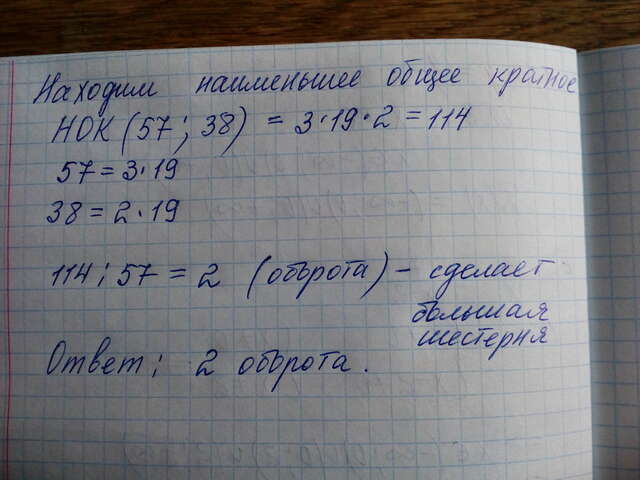 Находим наименьшее общее кратное
НОК (57; 38) = 3·19·2 = 114
57 = 3·19
38 = 2·19
114 : 57 = 2 (оборота) – сделает
большая
шестерня
Ответ: 2 оборота.